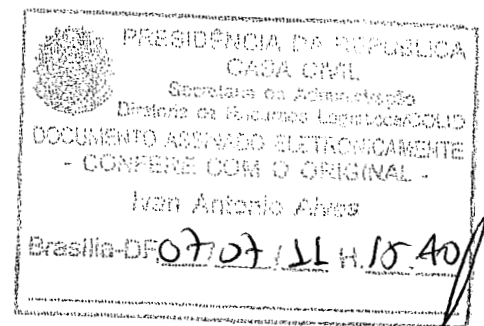 PRESIDÊNCIA DA REPÚBLICA
CASA CIVIL
Secretaria de Administração
Diretoria de Recursos Logísticos/COLID
DOCUMENTO ASSINADO ELETRONICAMENTE
- CONFERE COM O ORIGINAL -
Ivan Antonio Alves
Brasília-DF, 07/07/11 H. 15:40